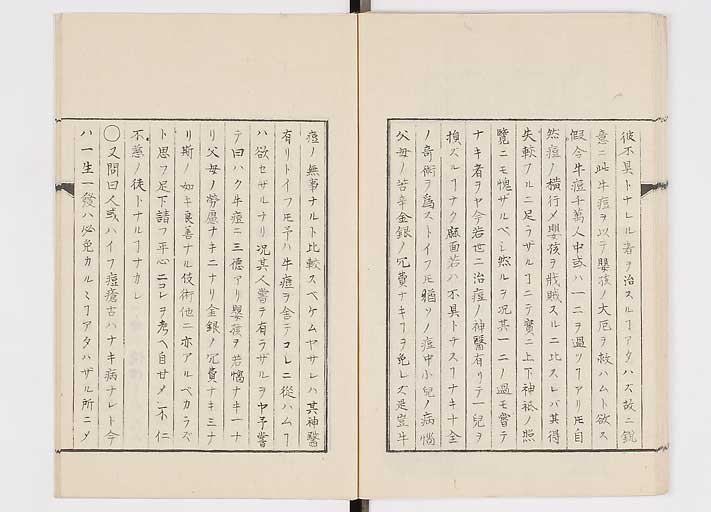 彼不具トナレル者ヲ治スルヿアタハズ故ニ鋭
意ニ此牛痘ヲ以テ嬰孩ノ大厄ヲ救ハムト欲ス
假令牛痘千萬人中或ハ一二ヲ過ツヿアリ𪜈自
然痘ノ横行メ嬰孩ヲ戕賊スルニ比スレバ其得
失較フルニ足ラザルヿニテ實ニ上下神祇ノ照
覽ニモ愧ザルベシ然ルヲ况其一二ノ過モ嘗テ
ナキ者ヲヤ今若世ニ治痘ノ神醫有リテ一兒ヲ
損ズルヿナク麻面若ハ不具トナスヿナキ十全
ノ奇術ヲ爲ストイフ𪜈猶ソノ痘中小兒ノ病惱
父母ノ苦辛金銀ノ冗費ナキヿヲ免レズ是豈牛
痘ノ無事ナルト比較スベケムヤサレハ其神醫
有リトイフ𪜈予ハ牛痘ヲ舎テコレニ從ハムヿ
ハ欲セザルナリ况其人嘗テ有ラザルヲヤ予嘗
テ曰ハク牛痘ニ三德アリ嬰孩ヲ若惱ナキ一ナ
リ父母ノ勞慮ナキ二ナリ金銀ノ冗費ナキ三ナ
リ斯ノ如キ良善ナル伎術他ニ亦アルベカラズ
ト思フ足下請フ平心ニコレヲ考ヘ自甘メ不仁
不慈ノ徒トナルヿナカレ
〇又問曰人或ハイフ痘瘡古ハナキ病ナレト今
ハ一生一發ハ必免カルヽヿアタハザル所ニメ